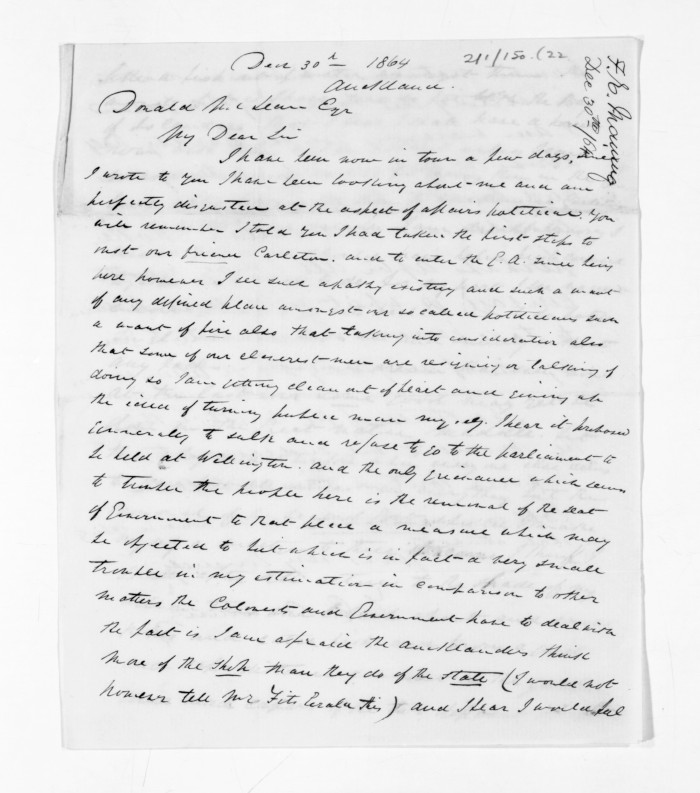 Dec 30th 1864
Auckland.
211/150.(22
F. E. Maning
Dec 30th /64
Donald McLean Esqr
My Dear Sir
I have been now in town a few days, since
I wrote to you I have been looking about me and am
perfectly disgusted at the aspect of affairs political. You
will remember I told you I had taken the first steps to
oust our friend Carleton. and to enter the G. A. since being
here however I see such apathy existing and such a want
of any defined plan amongst our so called politicians such
a want of fire also that taking into consideration also
that some of our cleverest men are resigning or talking of
doing so I am getting clean out of heart and giving up
the idea of turning public man myself. I hear it proposed
generally to sulk and refuse to go to the parliament to
be held at Wellington. and the only grievance which seems
to trouble the people here is the removal of the seat
of Government to that place a measure which may
be objected to but which is in fact a very small
trouble in my estimation in comparison to other
matters the Colonists and Government have to deal with
the fact is I am afraid the aucklanders think
more of the shop than they do of the state (I would not
however tell Mr FitzGerald this) and I fear I would feel